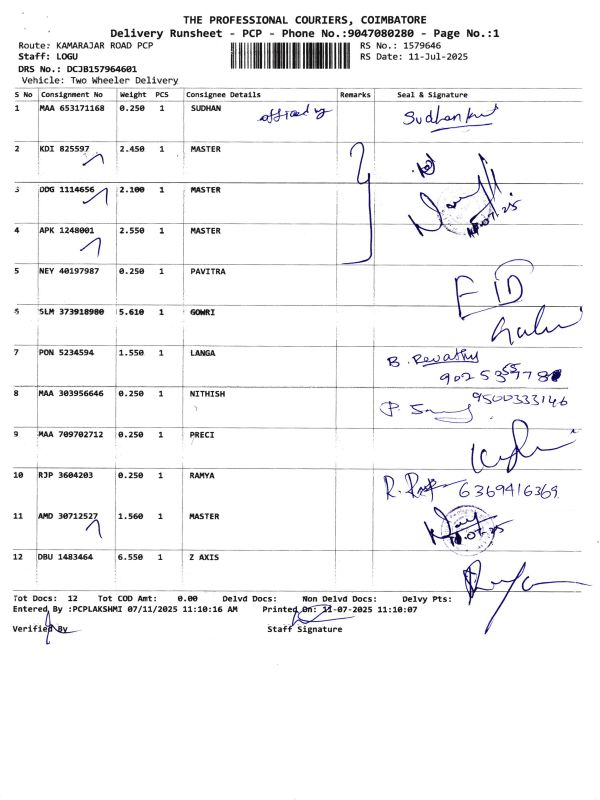 THE PROFESSIONAL COURIERS, COIMBATORE
Delivery Runsheet - PCP - Phone No.:9047080280 - Page No.:1
Route: KAMARAJAR ROAD PCP
RS No.: 1579646
Staff: LOGU
RS Date: 11-Jul-2025
DRS No.: DCJB157964601
Vehicle: Two Wheeler Delivery
S No Consignment No Weight PCS Consignee Details Remarks Seal & Signature
1 MAA 653171168 0.250 1 SUDHAN
2 KDI 825597 2.450 1 MASTER
3 DDG 1114656 2.100 1 MASTER
4 APK 1248001 2.550 1 MASTER
5 NEY 40197987 0.250 1 PAVITRA
6 SLM 373918980 5.610 1 GOWRI
7 PON 5234594 1.550 1 LANGA B. Revathy
8 MAA 303956646 0.250 1 NITHISH 9500333146
9 MAA 709702712 0.250 1 PRECI
10 RJP 3604203 0.250 1 RAMYA 6369416369
11 AMD 30712527 1.560 1 MASTER
12 DBU 1483464 6.550 1 Z AXIS
Tot Docs: 12 Tot COD Amt: 0.00 Delvd Docs: Non Delvd Docs: Delvy Pts:
Entered By :PCPLAKSHMI 07/11/2025 11:10:16 AM Printed On: 11-07-2025 11:10:07
Verified By Staff Signature